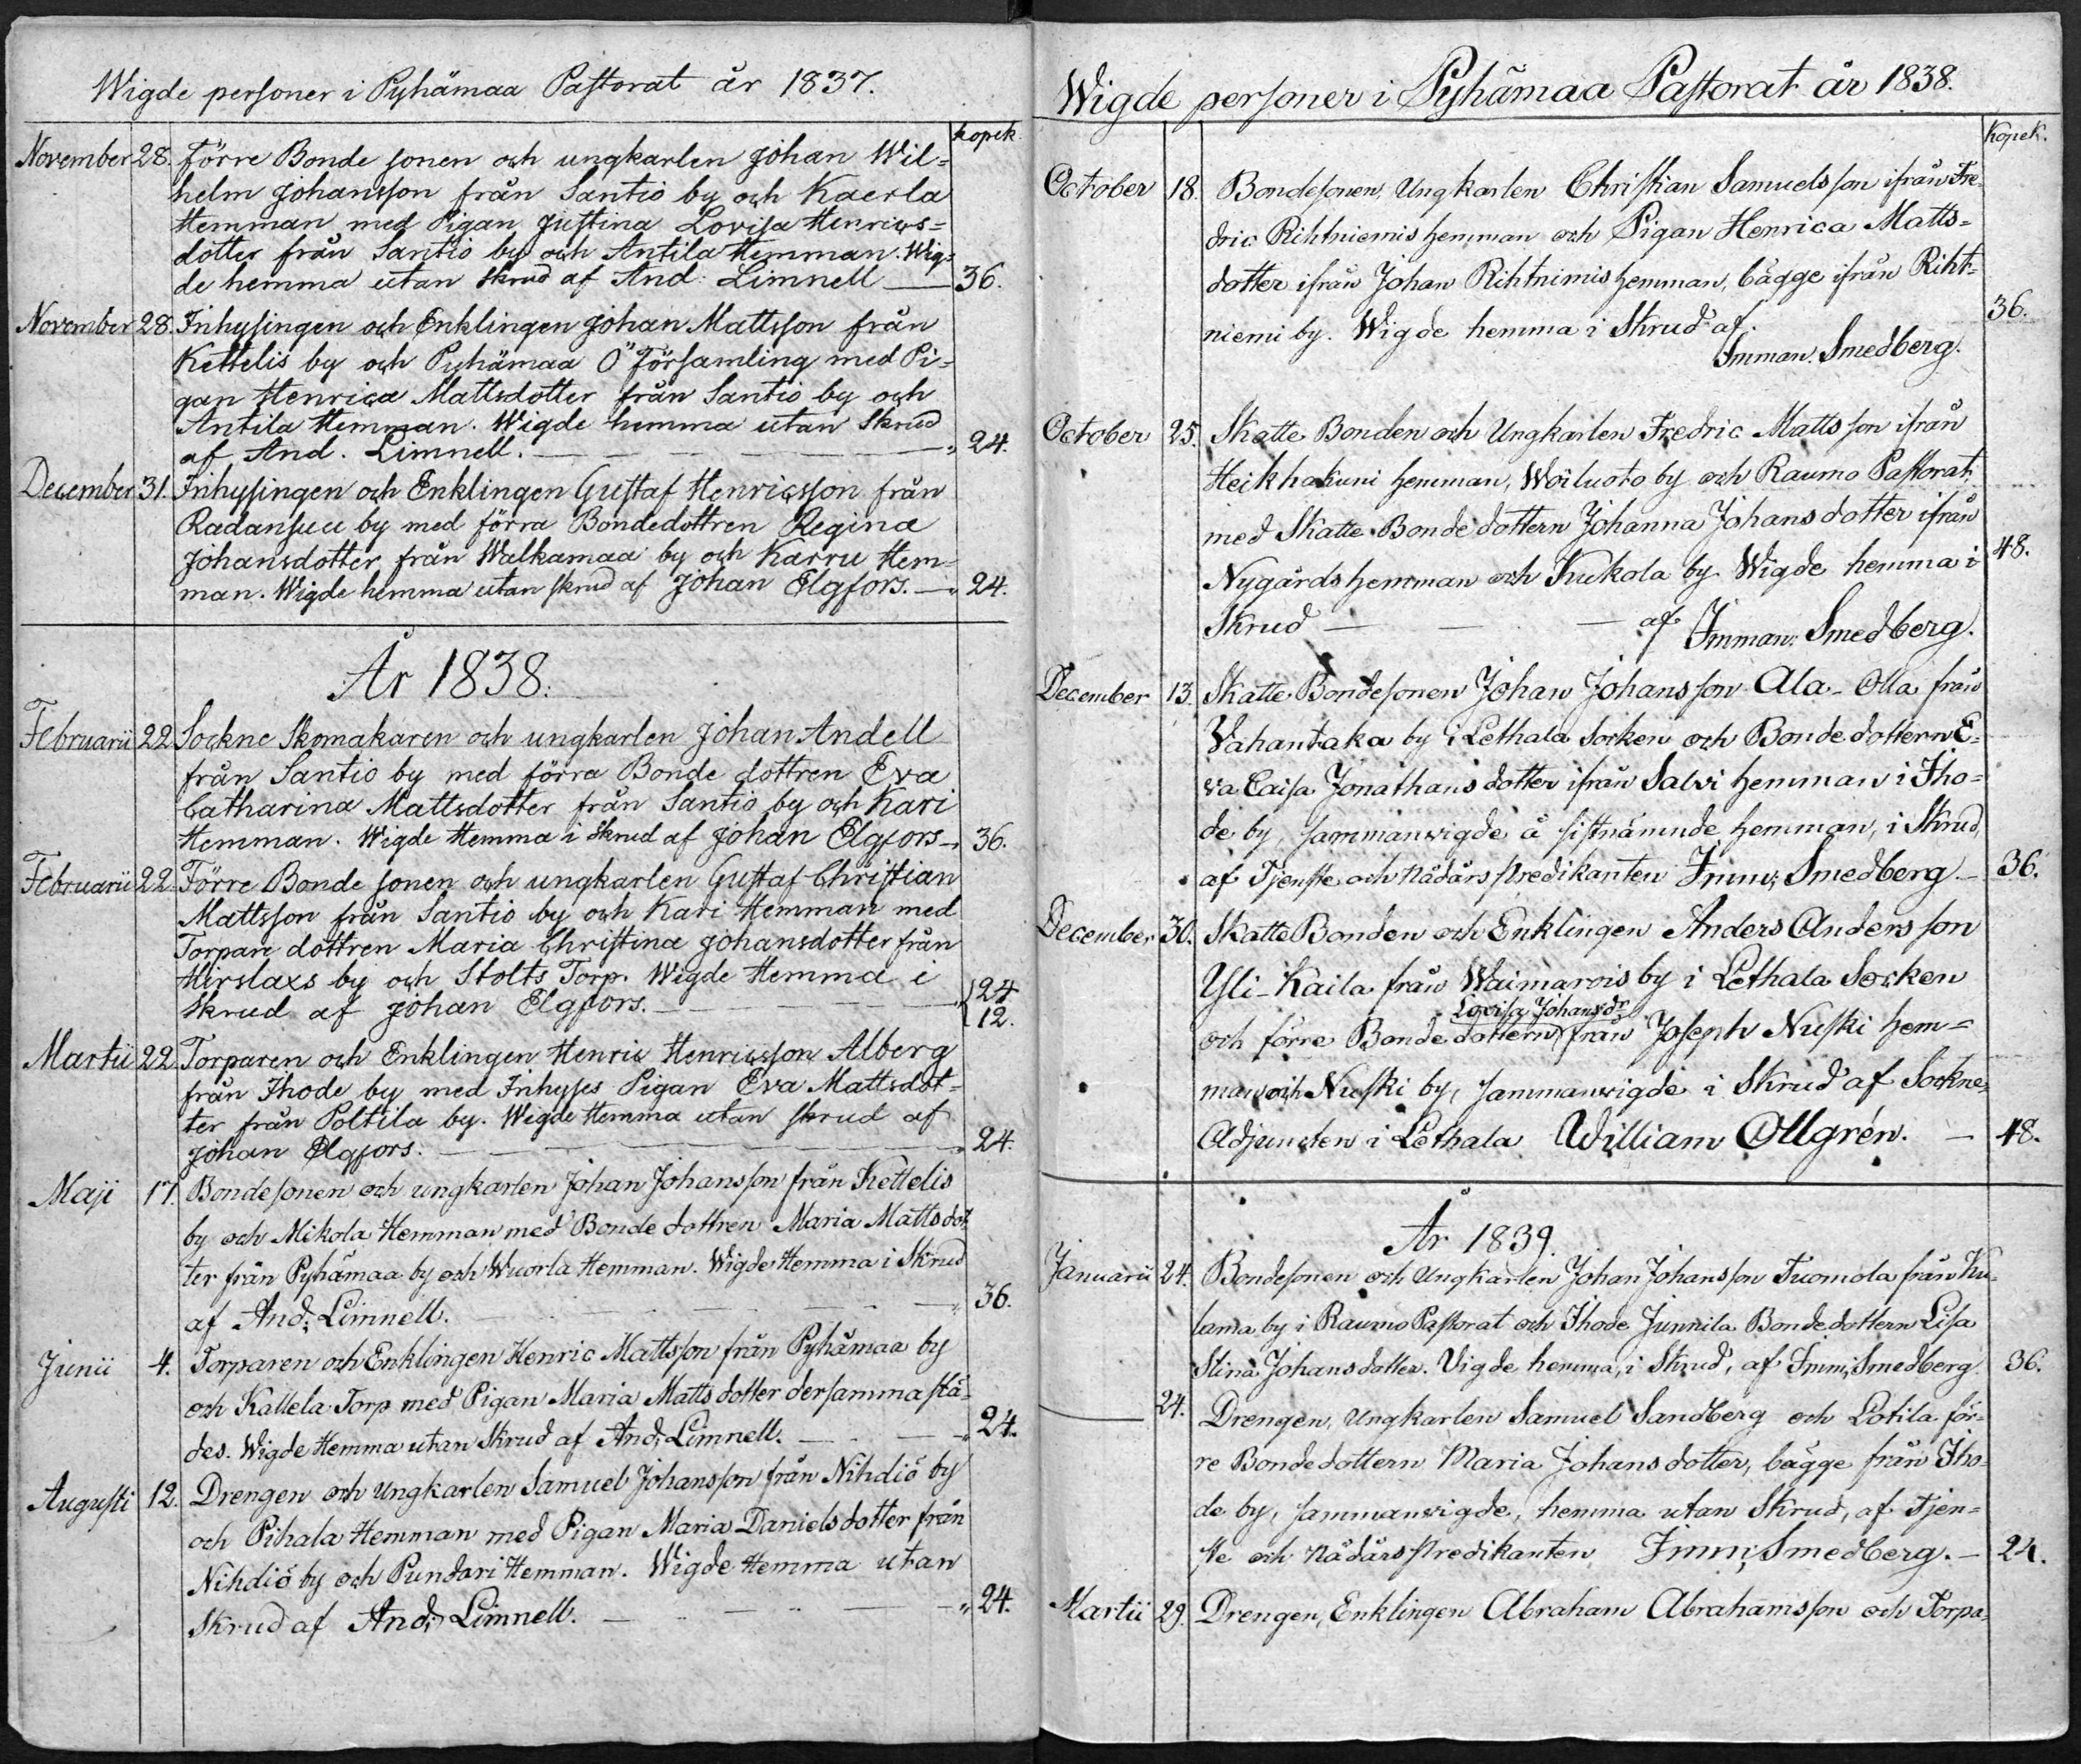 Wigde personer i Pyhämaa Pastorat år 1837.
kopek
November 28. Förre Bonde sonen och ungkarlen Johan Wil=
helm Johansson från Santio by och Kaerla
Hemman med Pigan Justina Lovisa Henrics=
dotter från Santio by och Antila Hemman. Wig=
de hemma utan skrud af And: Limnell — 36.
November 28. Inhysingen och Enklingen Johan Mattsson från
Kettelis by och Pyhämaa Ö Församling med Pi=
gan Henrica Mattsdotter från Santio by och
Antila Hemman. Wigde hemma utan Skrud
af And. Limnell. — — — — „ 24.
December 31. Inhysingen och Enklingen Gustaf Henricsson från
Radansuu by med förra Bondedottren Regina
Johansdotter från Walkamaa by och Karru Hem-
man. Wigde hemma utan skrud af Johan Elgfors. — „ 24.
År 1838.
Februarii 22. Sockne Skomakaren och ungkarlen Johan Andell
från Santio by med förra Bonde dottren Eva
Catharina Mattsdotter från Santio by och Kari
Hemman. Wigde Hemma i Skrud af Johan Elgfors — 36.
Februarii 22. Förre Bonde sonen och ungkarlen Gustaf Christian
Mattsson från Santio by och Kari Hemman med
Torpare dottren Maria Christina Johansdotter från
Hirslaxs by och Stolts Torp. Wigde Hemma i
skrud af Johan Elgfors. — — — { 24
12.
Martii 22 Torparen och Enklingen Henric Henricsson Alberg
från Ihode by med Inhyses Pigan Eva Mattsdot=
ter från Poltila by. Wigde Hemma utan skrud af
Johan Elgfors. — — — „ 24.
Maji 17. Bondesonen och ungkarlen Johan Johansson från Kettelis
by och Mikola Hemman med Bonde dottren Maria Mattsdot
ter från Pyhämaa by och Wuorla Hemman. Wigde Hemma i Skrud
af And; Limnell. — — — „ 36.
Junii 4. Torparen och Enklingen Henric Mattsson från Pyhämaa by
och Kallela Torp med Pigan Maria Matts dotter dersamma stä-
des. Wigde Hemma utan Skrud af And; Limnell. — — „ 24.
Augusti 12. Drengen och Ungkarlen Samuel Johansson från Nihdiö by
och Pihala Hemman med Pigan Maria Daniels dotter från
Nihdiö by och Pundari Hemman. Wigde Hemma utan
Skrud af And; Limnell. — — — „ 24.
Wigde personer i Pyhämaa Pastorat år 1838.
Kopek.
October 18. Bondesonen, Ungkarlen Christian Samuelsson ifrån Fre-
dric Rihtniemis hemman och Pigan Henrica Matts=
dotter ifrån Johan Rihtnimis hemman, bägge ifrån Riht=
niemi by. Wigde hemma i Skrud af 36.
Imman. Smedberg.
October 25. Skatte Bonden och Ungkarlen Fredric Mattsson ifrån
Heikhakuni hemman, Woiluoto by och Raumo Pastorat
med Skatte Bonde dottern Johanna Johans dotter ifrån
Nygårds hemman och Kukola by Wigde hemma i 48.
Skrud — — — af Imman: Smedberg.
December 13. Skatte Bondesonen Johan Johansson Ala-Olla från
Vahantaka by i Lethala Socken och Bonde dottern E=
va Caisa Jonathans dotter ifrån Salvi hemman i Iho=
de by, sammanvigde å sistnämnde hemman, i Skrud,
af Tjenste och Nådårs Predikanten Imm; Smedberg — 36.
December 30. Skatte Bonden och Enklingen Anders Andersson
Yli-Kaila från Waimarois by i Lethala Socken
Lovisa Johansdr
och förre Bonde dottern från Joseph Nuski hem=
man och Nuski by, sammanvigde i Skrud af Sockne
Adjuncten i Lethala William Ollgrén. — 48.
År 1839.
Januarii 24. Bondesonen och Ungkarlen Johan Johansson Tuomola från Ku-
lama by i Raumo Pastorat och Ihode Junnila Bonde dottern Lisa
Stina Johans dotter. Vigde hemma, i Skrud, af Imm; Smedberg 36.
— 24. Drengen, Ungkarlen Samuel Sandberg och Lotila för=
re Bonde dottern Maria Johans dotter, bägge från Iho-
de by, sammanvigde, hemma utan Skrud, af Tjen=
ste och Nådårs Predikanten Imm; Smedberg. — 24.
Martii 29. Drengen, Enklingen Abraham Abrahamsson och Torpa=